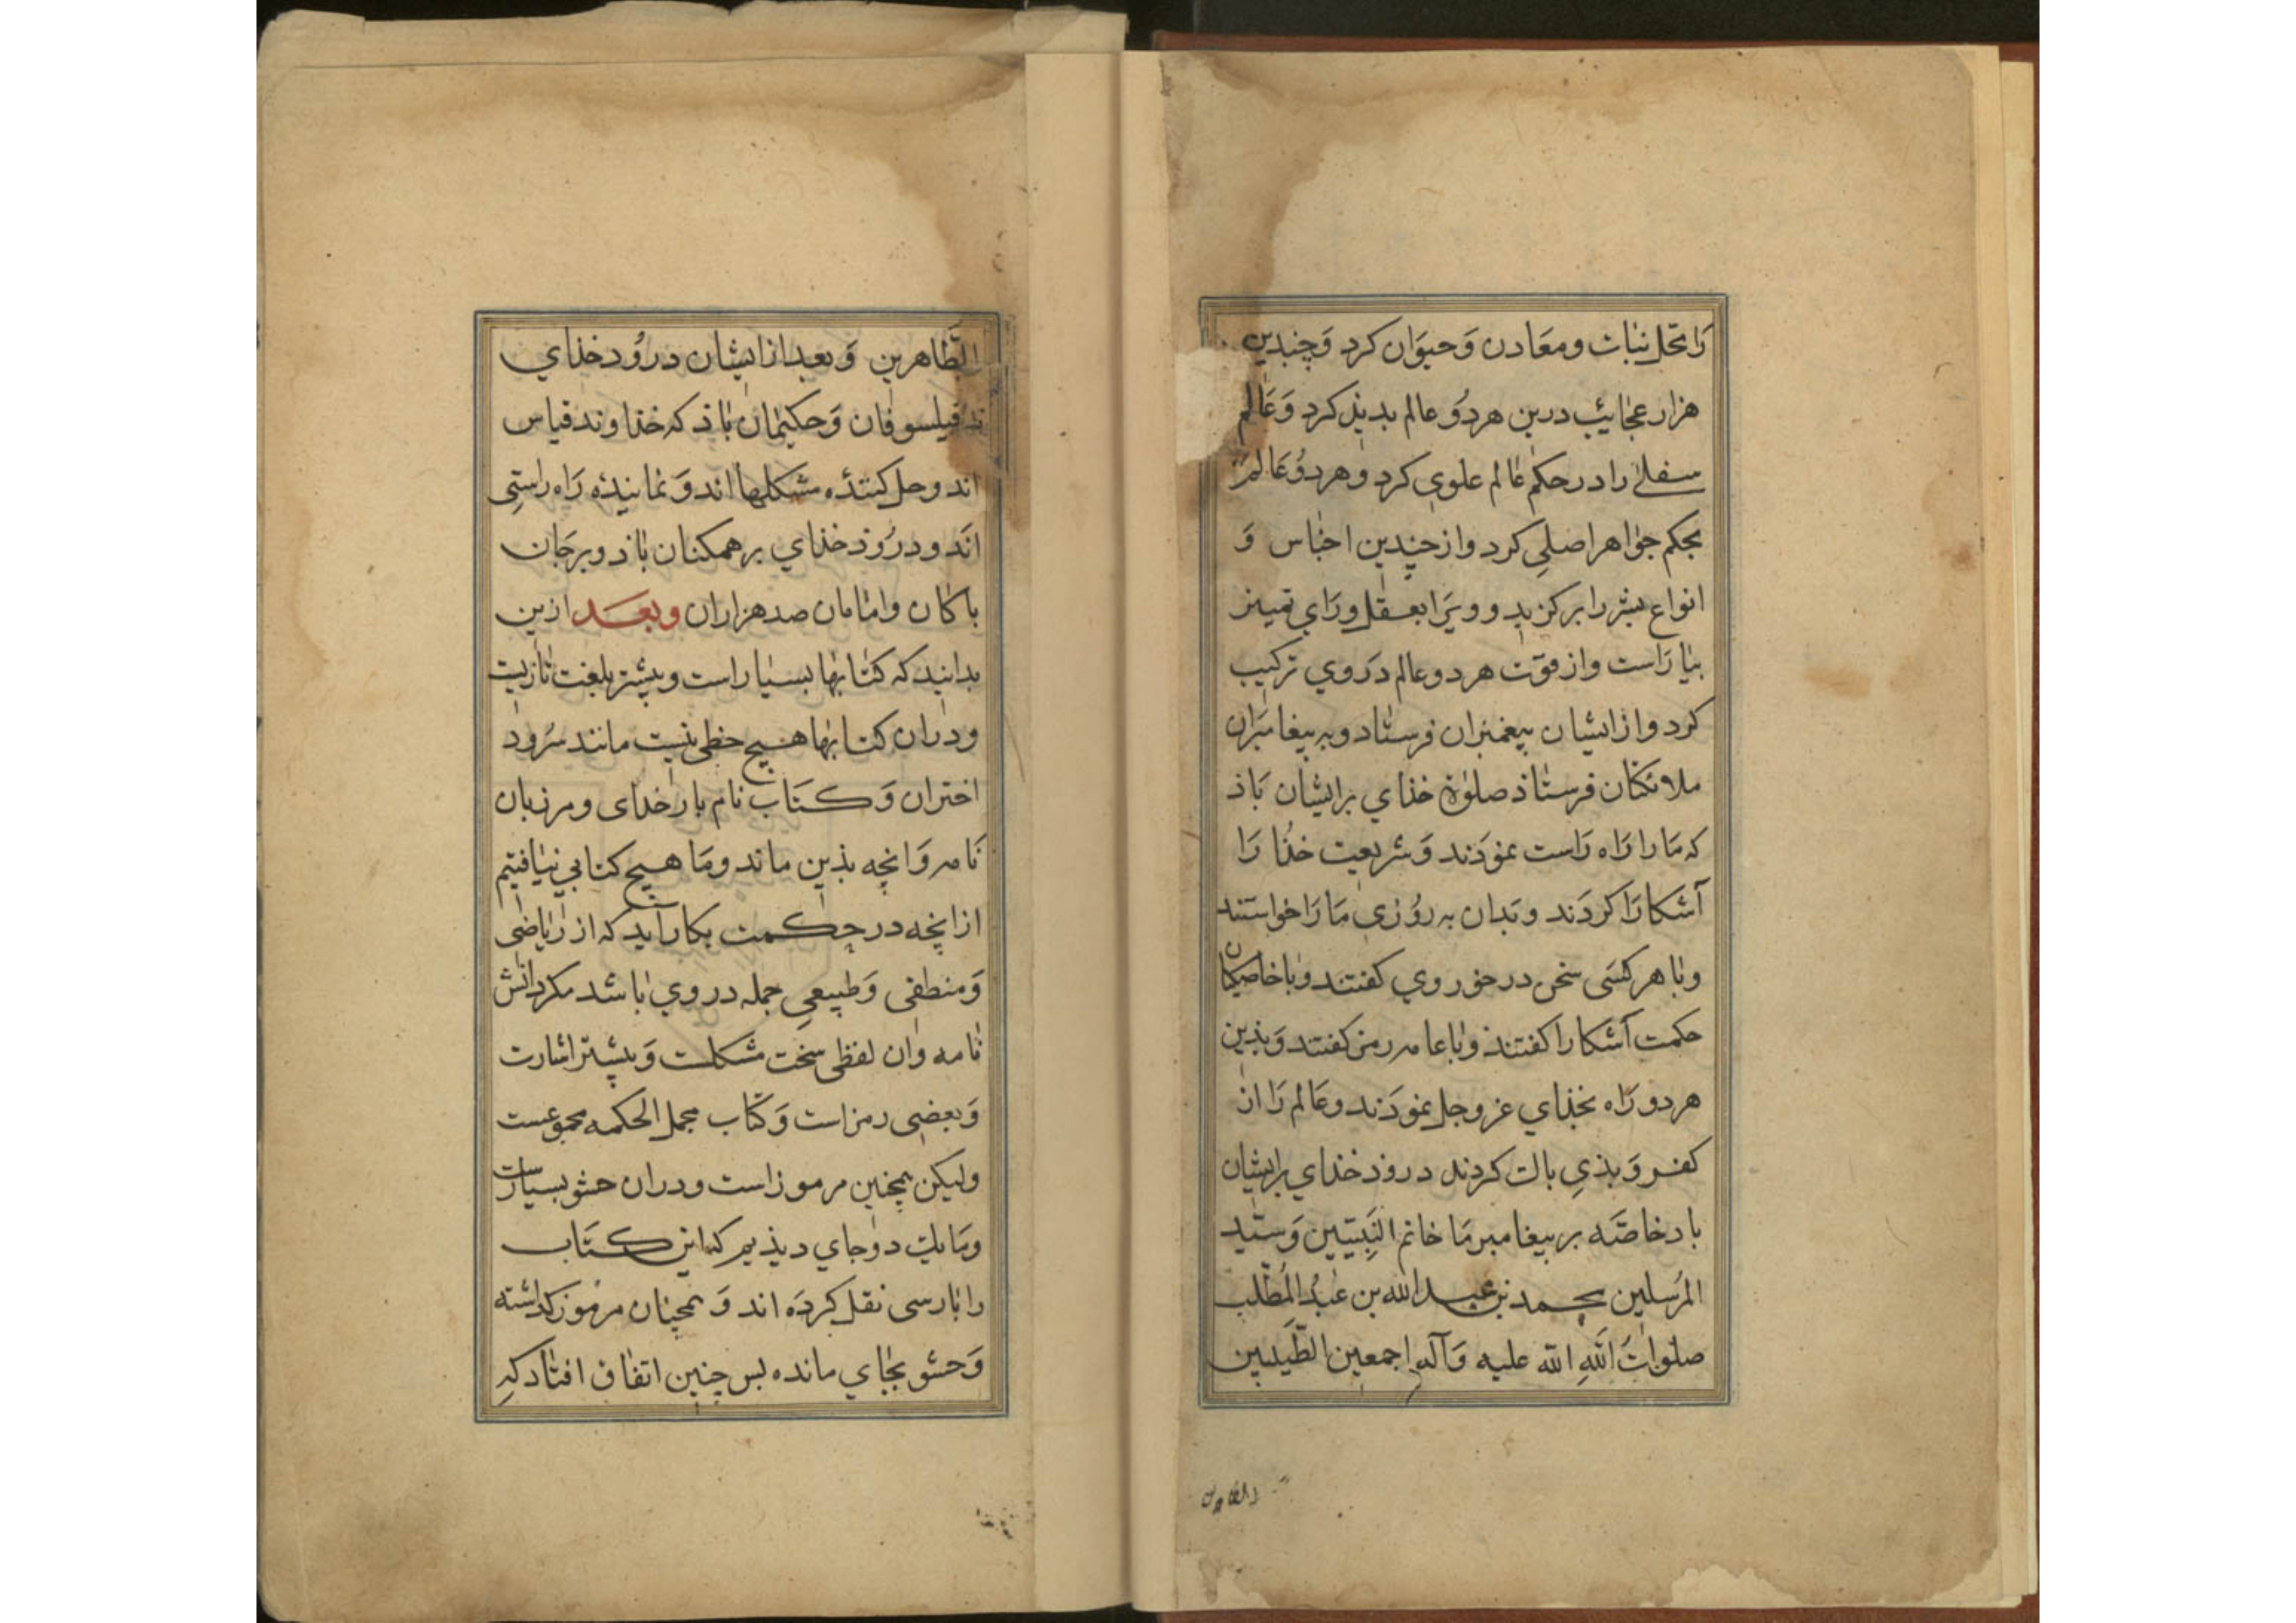 را محل نبات ومعادن وَحیوَان کرد وَچندین
هزار عجایب درین هردُو عالم بدیذ کرد وَعَالم
سفلی را در حکم عالم علوی کرد وهردُو عَالم رَا
بحکم جواهر اصلی کرد واز چندین اجناس وَ
انواع بشر را برکزید وویَرا بعقل ورَای تمییز
بیارَاست واز قوّت هردوعالم دَروی ترکیب
کرد وازایشان بیغمبران فرستاد وبه بیغامبَران
ملائکان فرستاذ صلوٰة خذای برایشان بَاذ
که مَا را رَاه رَاست نموُدَند وَشریعت خذُا رَا
آشکارَا کردَند وبَدان به رُوزی مَا رَا خواستند
وبا هر کسَی سخن درخور وی کفتند وباخاصیکان
حکمت آشکارا کفتند وباعامه رمز کفتند وَبذین
هردو رَاه بخذای عزوجل نموُدَند وعَالم رَا از
کفر وَبذیِ بالت کردند دروذ خذای برایشان
باد خاصَّه بر بیغامبر مَا خاتم النَبِیّین وَسیّد
المرُسلین محمد بن عبد الله بن عَبدُ المُطّلب
صلوَاتُ اللهِ الله علیه وَآله اجمعین الطَّیبین
الطَّاهرین وَبعد از ایشان درُود خذای
بر فیلسوفان وَحکیمان باذ که خذاوند قیاس
اند وحل کنندهٔ مشکلها اند وَنمایندهٔ رَاه رَاستیِ
اَند ودرُوذ خذای برهمکنان باذ وبرجَان
باکان وامامان صدهزاران وبعَد ازین
بدانید که کتابها بسیار است وبیشتر بلغت تازیست
ودران کتابها هیچ حظی نیست مانند سرُود
اختران وَکتَاب نام بار خدای ومرزبان
نَامه وَانچه بذین ماند ومَا هیچ کتابی نیافتیم
ازانچه در حکمت بکار آید که از ریاضی
وَمنطقی وَطبیعی جمله دروی باشد مکردانش
نامه وان لفظی سخت مشکلست وَبیشتر اشارت
وَبعضی رمز است وَکتاب مجمل الحکمه مجموعست
ولیکن همچنین مرموز است ودران حشو بسیارست
ومَا یک دوجای دیذیم که این کتَاب
را بارسی نقل کردَه اند وَ همچنان مرمُوز کذاشته
وَحشو بجای مانده بس چنین اتفاق افتاد کهِ
الطاهرین